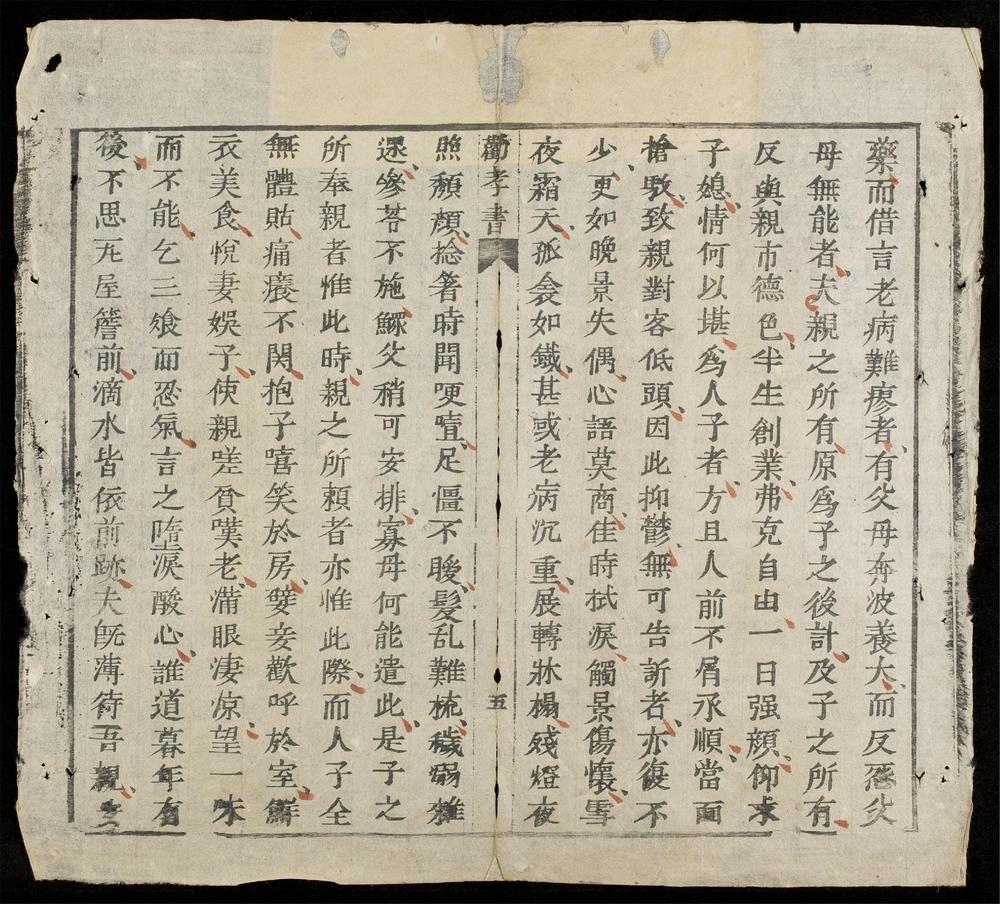 藥而借言老病難瘳者有父母奔波養大而反怨父
母無能者夫親之所有原爲子之後計及子之所有
反與親市德色半生創業弗克自由一日强顔仰求
子媳情何以堪爲人子者方且人前不屑承順當面
搶駁致親對客低頭因此抑鬱無可告訴者亦復不
少更如晚景失偶心語莫商佳時拭淚觸景傷懷雪
夜霜天孤衾如鐵甚或老病沉重展轉牀榻殘燈夜
勸孝書
五
照頩顔捻箸時聞哽噎足僵不暖髮乱難梳穢溺雖
遝參苓不施鰥父稍可安排寡母何能遣此是子之
所奉親者惟此時親之所頼者亦惟此際而人子全
無體貼痛癢不関抱子嘻笑於房嬖妾歡呼於室鮮
衣美食悅妻娛子使親嗟貧嘆老滿眼凄凉望一味
而不能乞三飧而忍氣言之墮淚酸心誰道暮年有
後不思瓦屋簷前滴水皆依前跡夫既薄待吾親